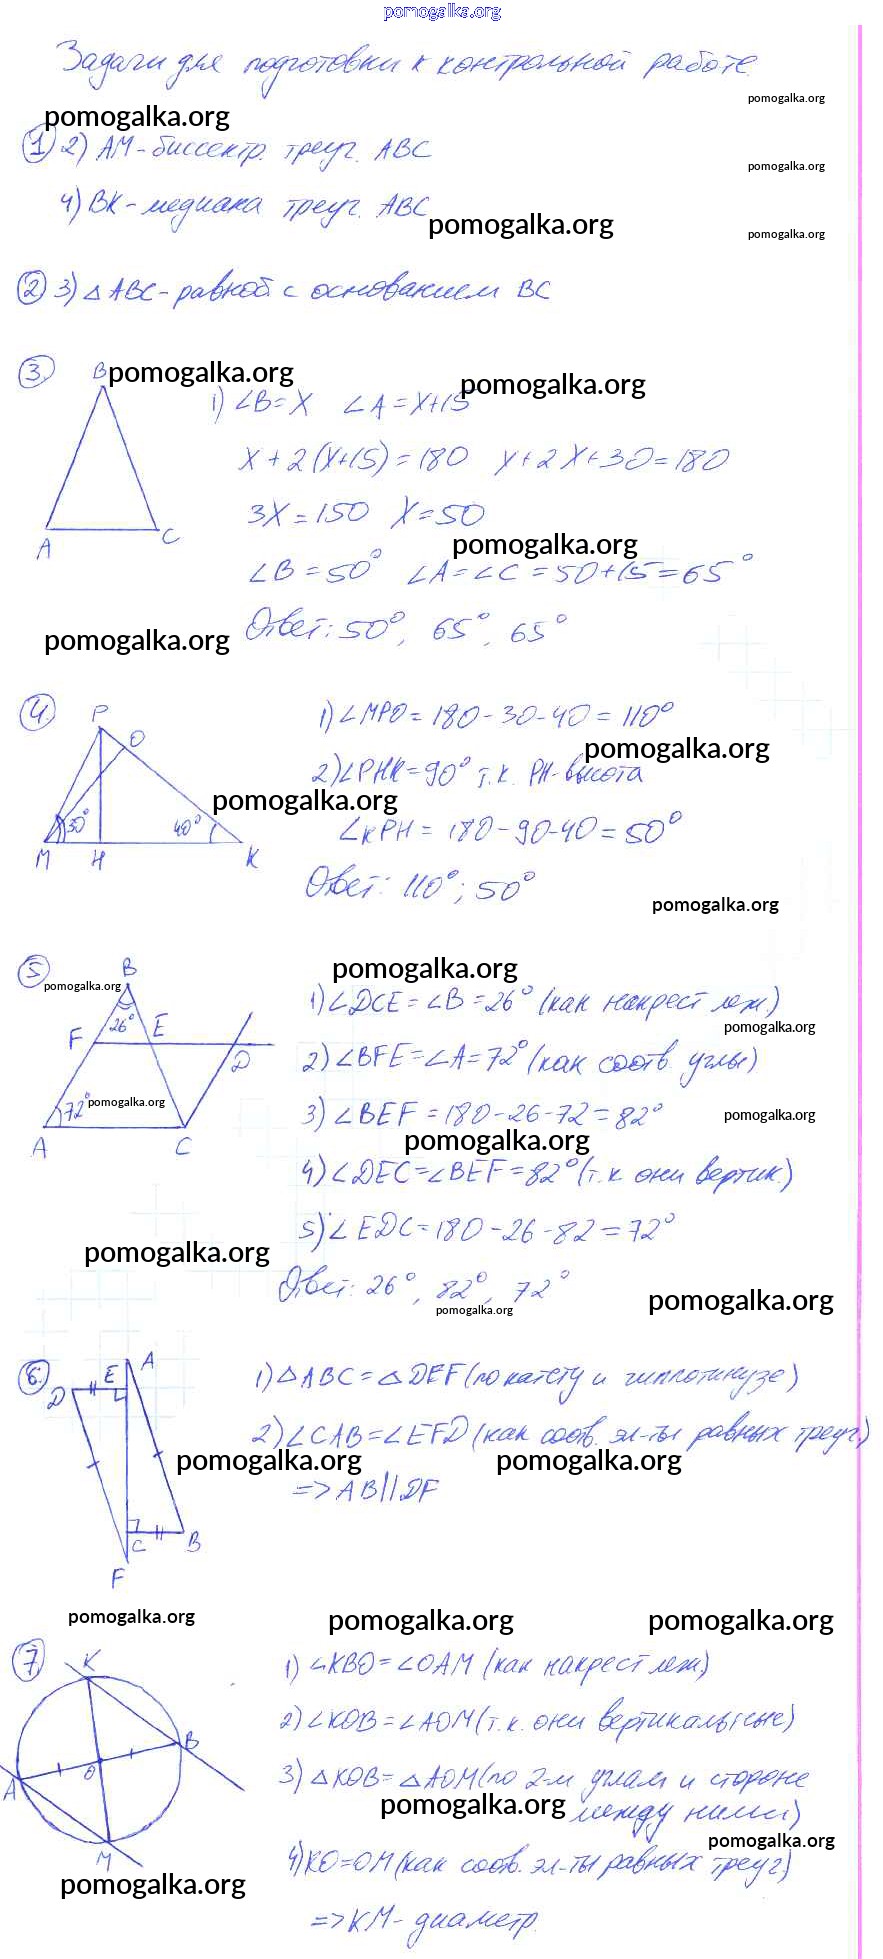 pomogalka.org
Задачи для подготовки к контрольной работе.
pomogalka.org
pomogalka.org
1 2) AM - биссектр. треуг. ABC
pomogalka.org
4) BK - медиана треуг. ABC
pomogalka.org
pomogalka.org
2 3) △ ABC - равноб. с основанием BC
3. B
pomogalka.org
pomogalka.org
1) ∠B = X ∠A = X+15
X + 2(X+15) = 180 X + 2X + 30 = 180
3X = 150 X = 50
A C
pomogalka.org
∠B = 50° ∠A = ∠C = 50+15 = 65°
pomogalka.org
Ответ: 50°, 65°, 65°
4. P O
1) ∠MPO = 180 - 30 - 40 = 110°
pomogalka.org
2) ∠PHK = 90° т.к. PH - высота
pomogalka.org
30° 40°
∠KPH = 180 - 90 - 40 = 50°
M H K
Ответ: 110°; 50°
pomogalka.org
5 B
pomogalka.org
pomogalka.org
1) ∠DCE = ∠B = 26° (как накрест леж.)
26° F E D
pomogalka.org
2) ∠BFE = ∠A = 72° (как соотв. углы)
72°
pomogalka.org
3) ∠BEF = 180 - 26 - 72 = 82°
pomogalka.org
A C
pomogalka.org
4) ∠DEC = ∠BEF = 82° (т.к они вертик.)
5) ∠EDC = 180 - 26 - 82 = 72°
pomogalka.org
Ответ: 26°, 82°, 72°
pomogalka.org
pomogalka.org
6. D E A
1) △ ABC = △ DEF (по катету и гиппотинузе)
2) ∠CAB = ∠EFD (как соотв. эл-ты равных треуг.)
pomogalka.org
pomogalka.org
=> AB || DF
C B
F
pomogalka.org
pomogalka.org
pomogalka.org
7. K
1) ∠KBO = ∠OAM (как накрест леж.)
2) ∠KOB = ∠AOM (т.к. они вертикальные)
A O B
3) △ KOB = △ AOM (по 2-м углам и стороне
pomogalka.org
между ними)
pomogalka.org
M
4) KO = OM (как соотв. эл-ты равных треуг.)
pomogalka.org
=> KM - диаметр.